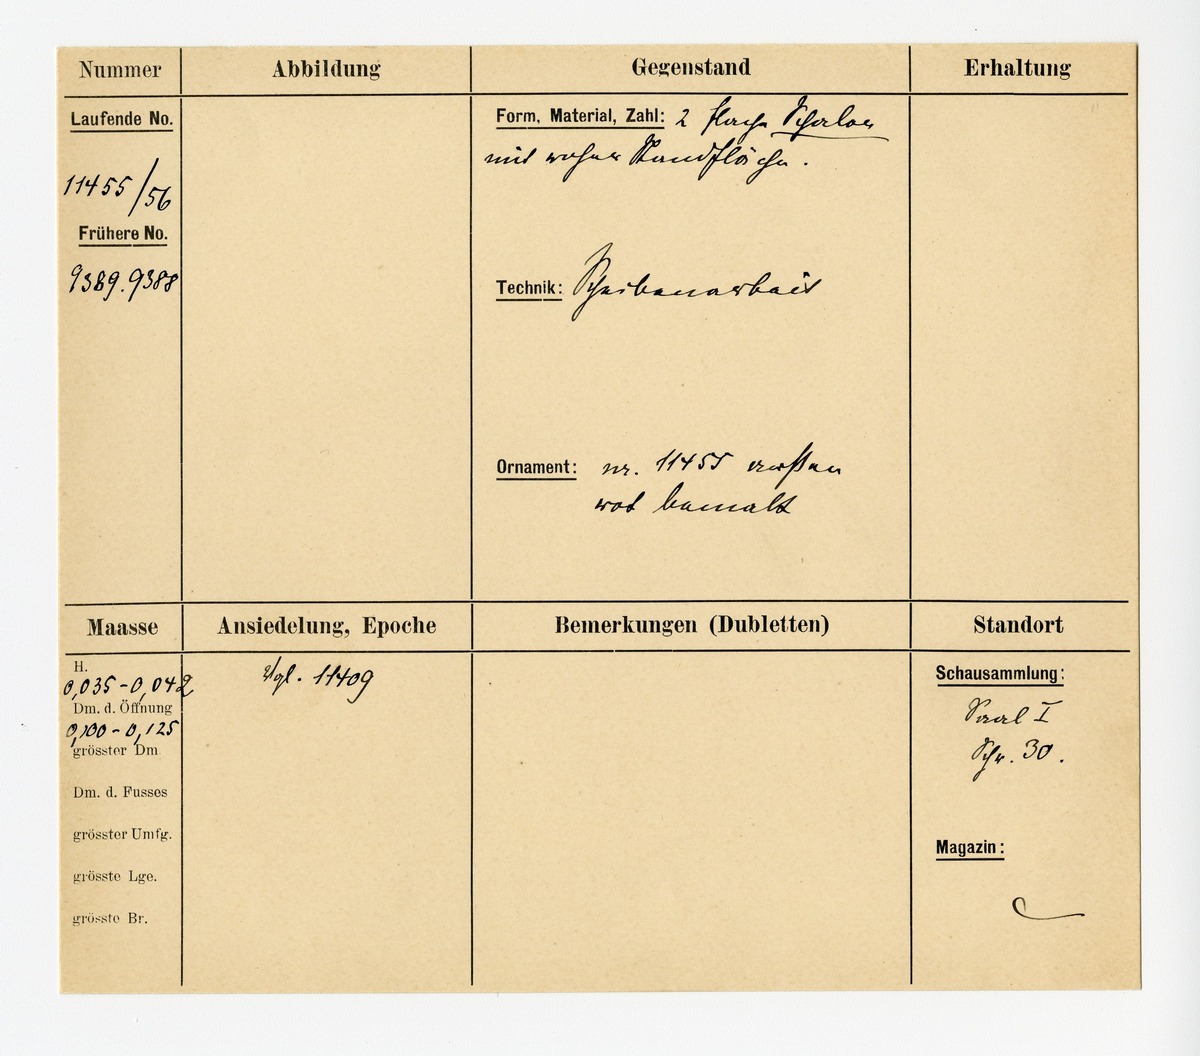 Nummer
Abbildung
Gegenstand
Erhaltung
Laufende No.
11455/56
Frühere No.
9389.9388
Form, Material, Zahl: 2 flache Schalen
mit roher Standfläche.
Technik: Scheibenarbeit
Ornament: nr. 11455 außen
rot bemalt
Maasse
Ansiedelung, Epoche
Bemerkungen (Dubletten)
Standort
H.
0,035-0,042
Dm. d. Öffnung
0,100-0,125
grösster Dm
Dm. d. Fusses
grösster Umfg.
grösste Lge.
grösste Br.
Vgl. 11409
Schausammlung:
Saal I
Schr. 30.
Magazin: